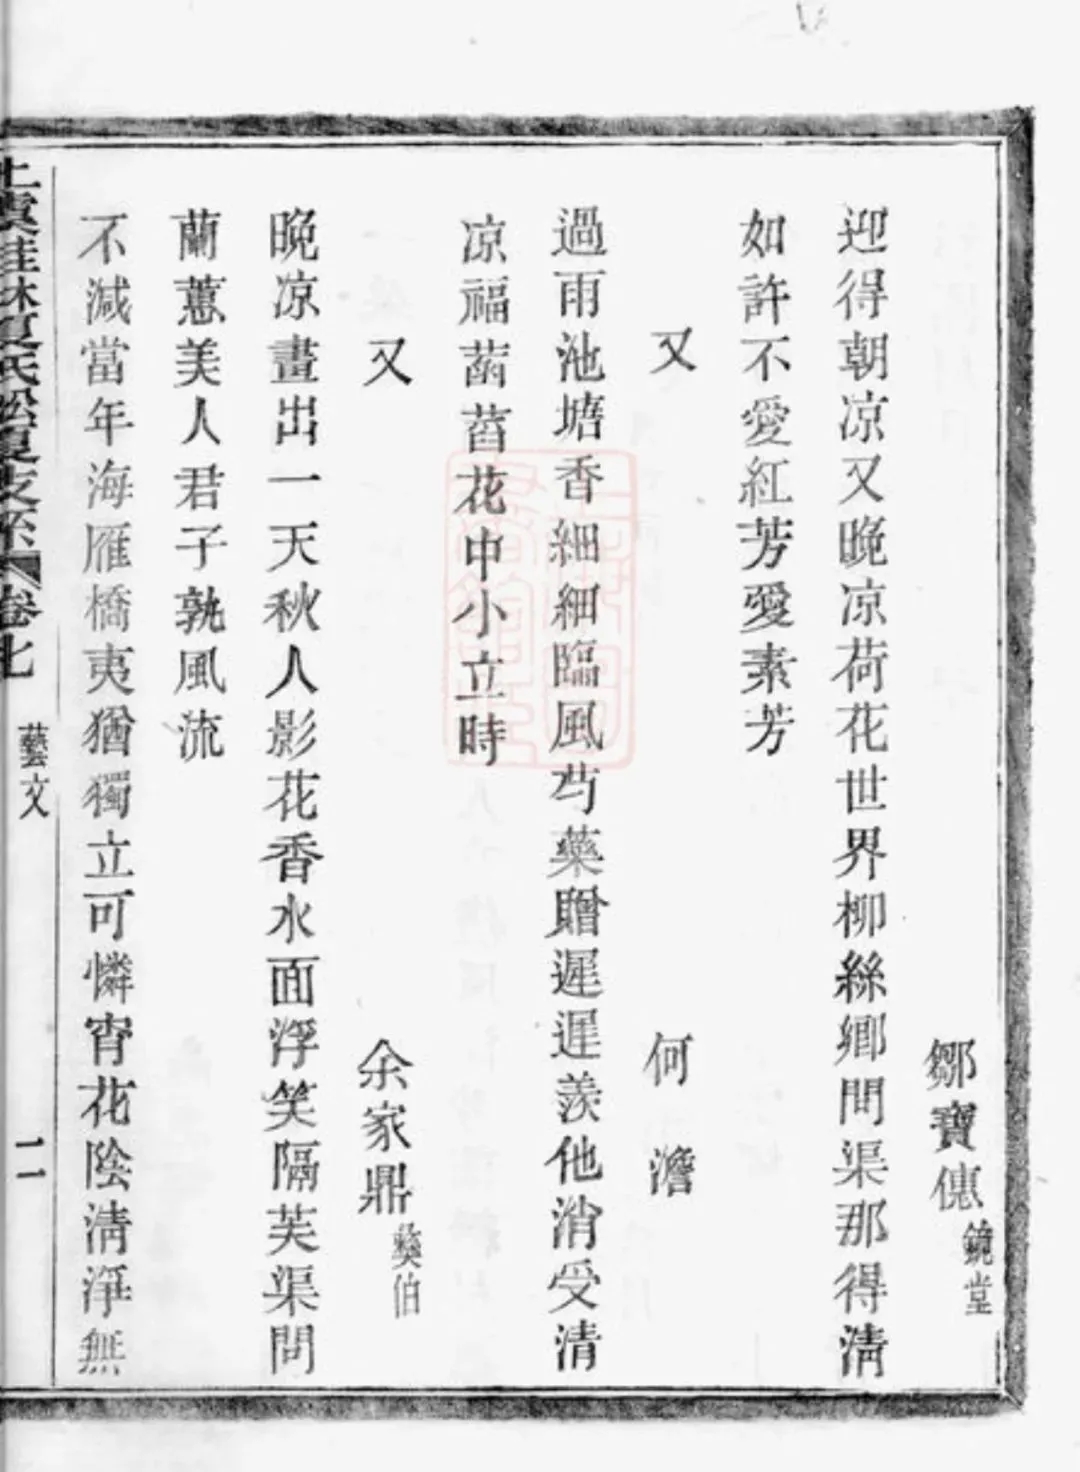 鄒寶僡鏡堂
迎得朝凉又晚凉荷花世界柳絲鄉問渠那得淸
如許不愛紅芳愛素芳
又 何澹
過雨池塘香細細臨風芍藥贈遲遲羨他消受清
凉福菡萏花中小立時
又 余家鼎彝伯
晚凉畫出一天秋人影花香水面浮笑隔芙渠問
蘭蕙美人君子孰風流
不減當年海雁橋夷猶獨立可憐宵花陰淸淨無
上虞桂林夏氏松夏支系 卷七 藝文 二